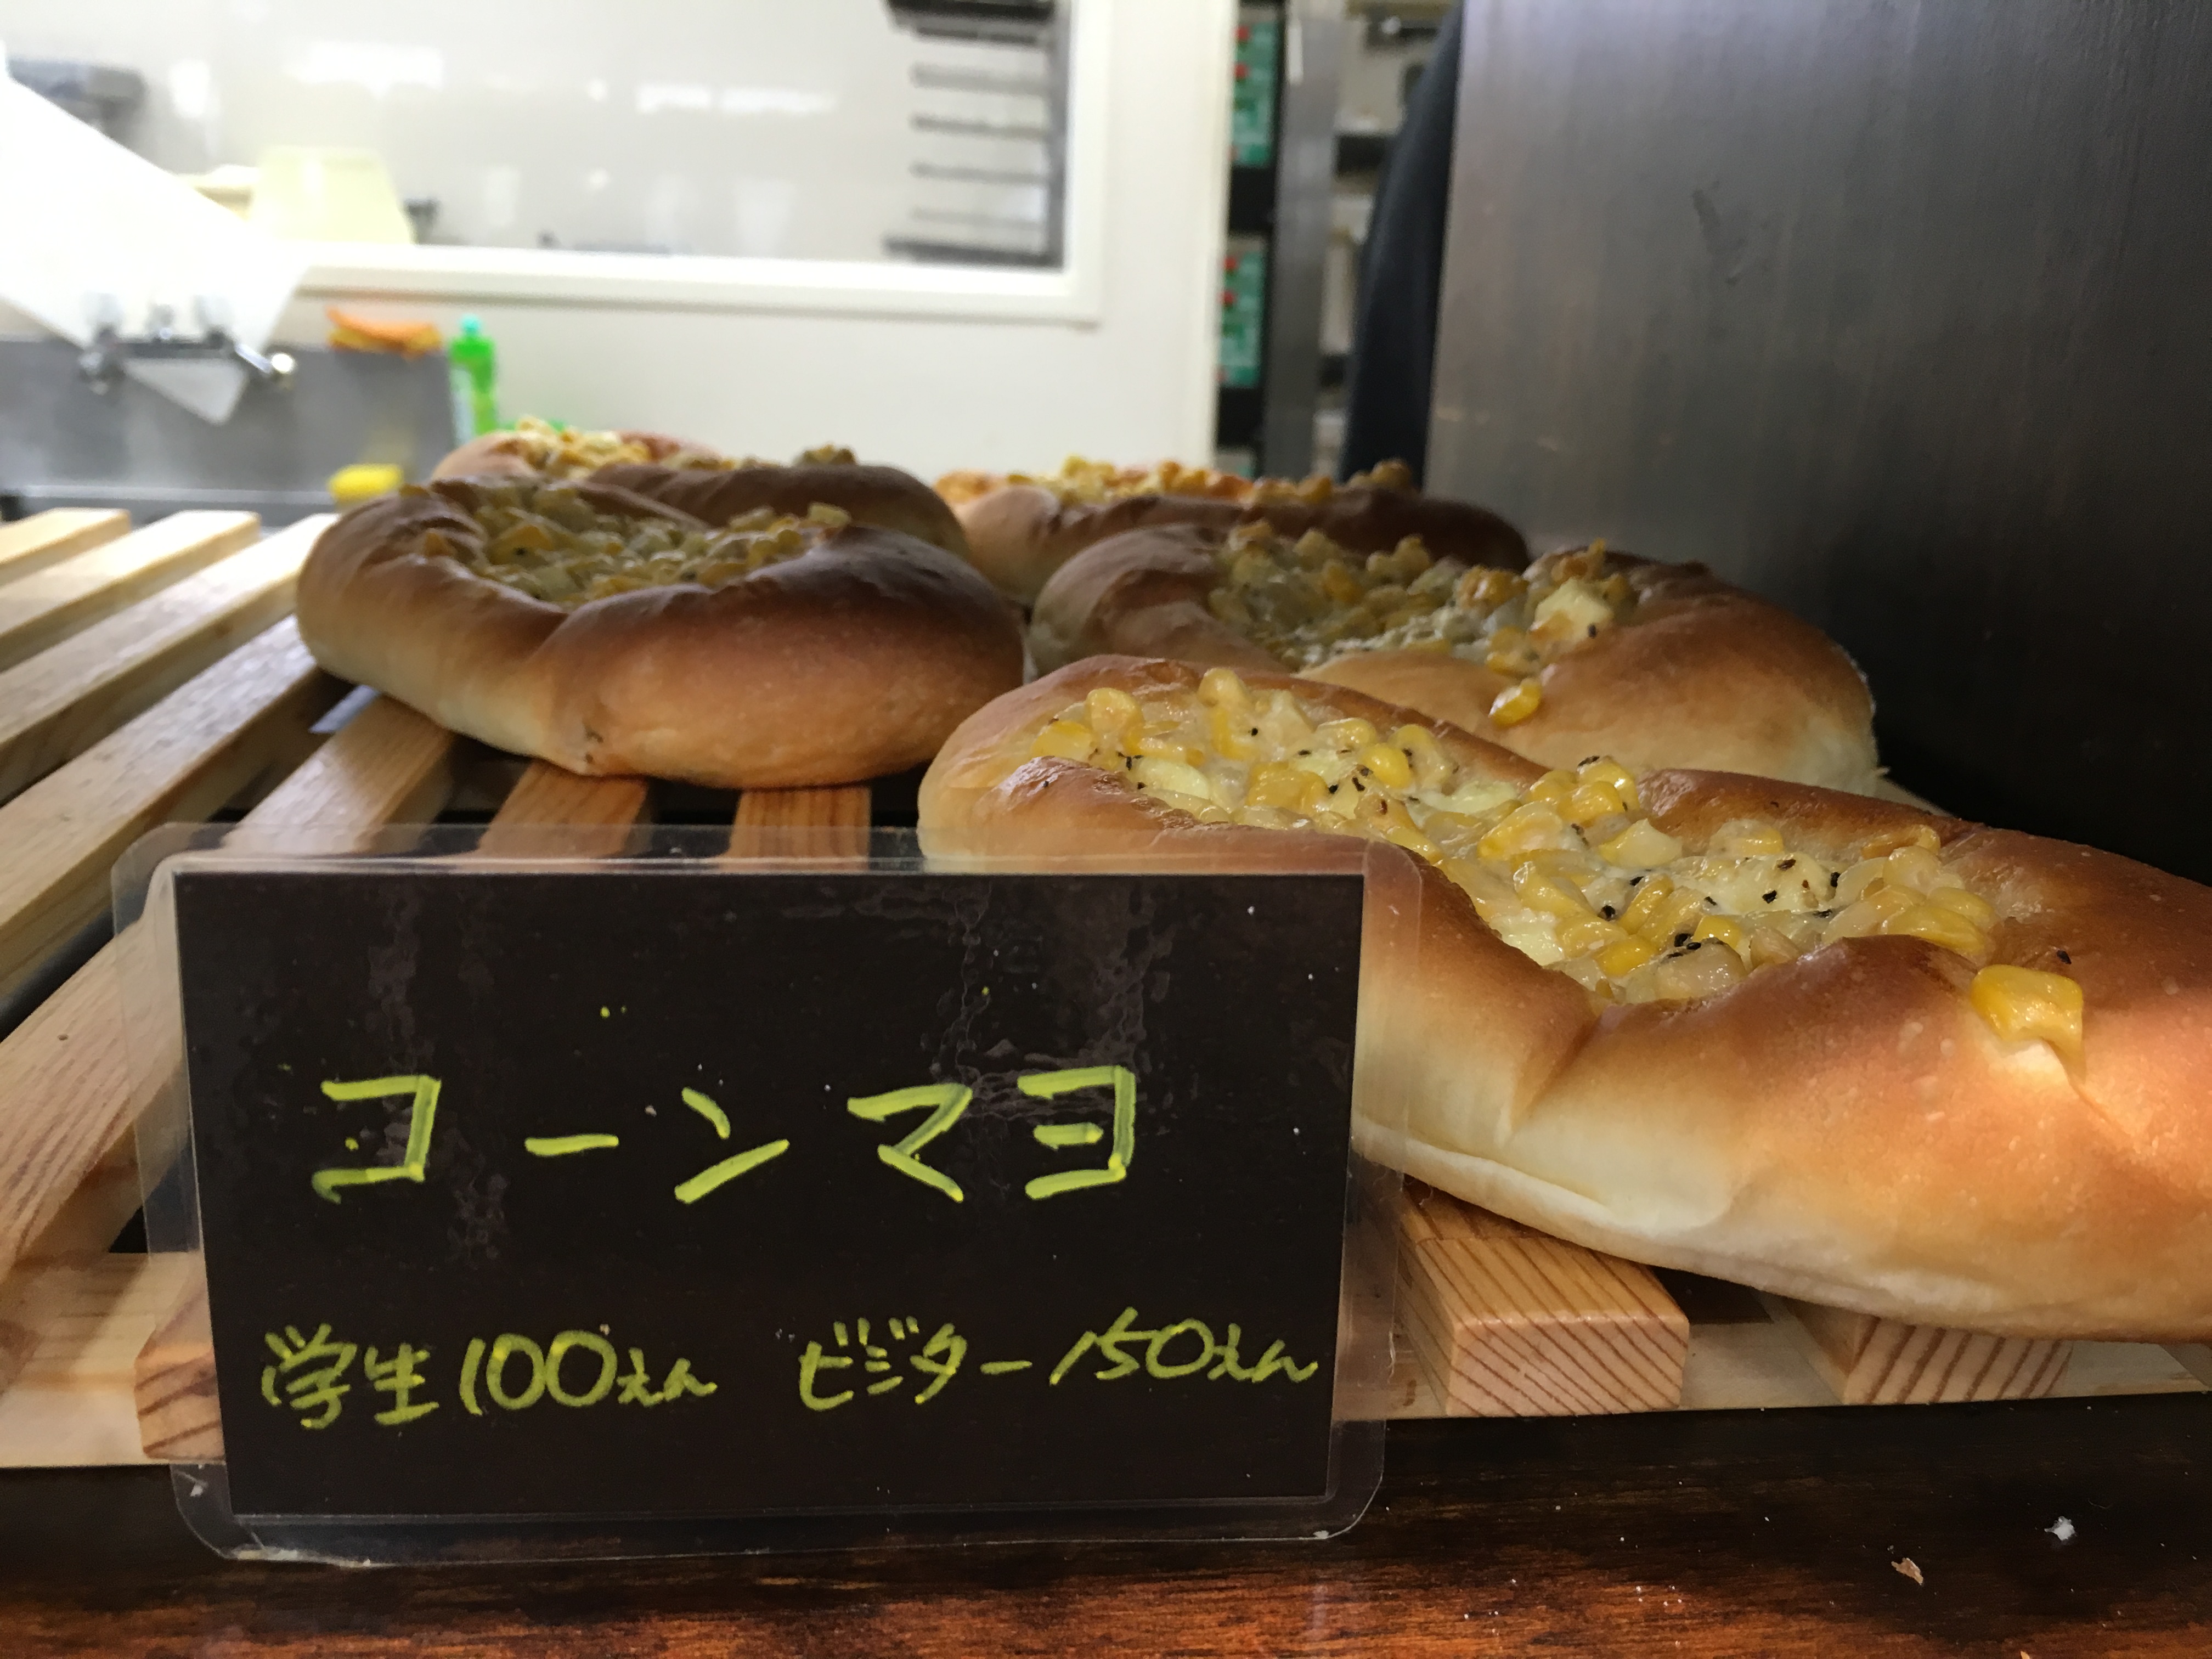 コーンマヨ
学生100えん ビジター150えん